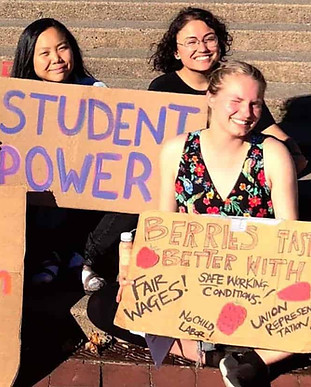 STUDENT
POWER
BERRIES TAST
BETTER WITH
FAIR
WAGES!
SAFE WORKING
CONDITIONS!
NO CHILD
LABOR!
UNION
REPRESEN
TATION!